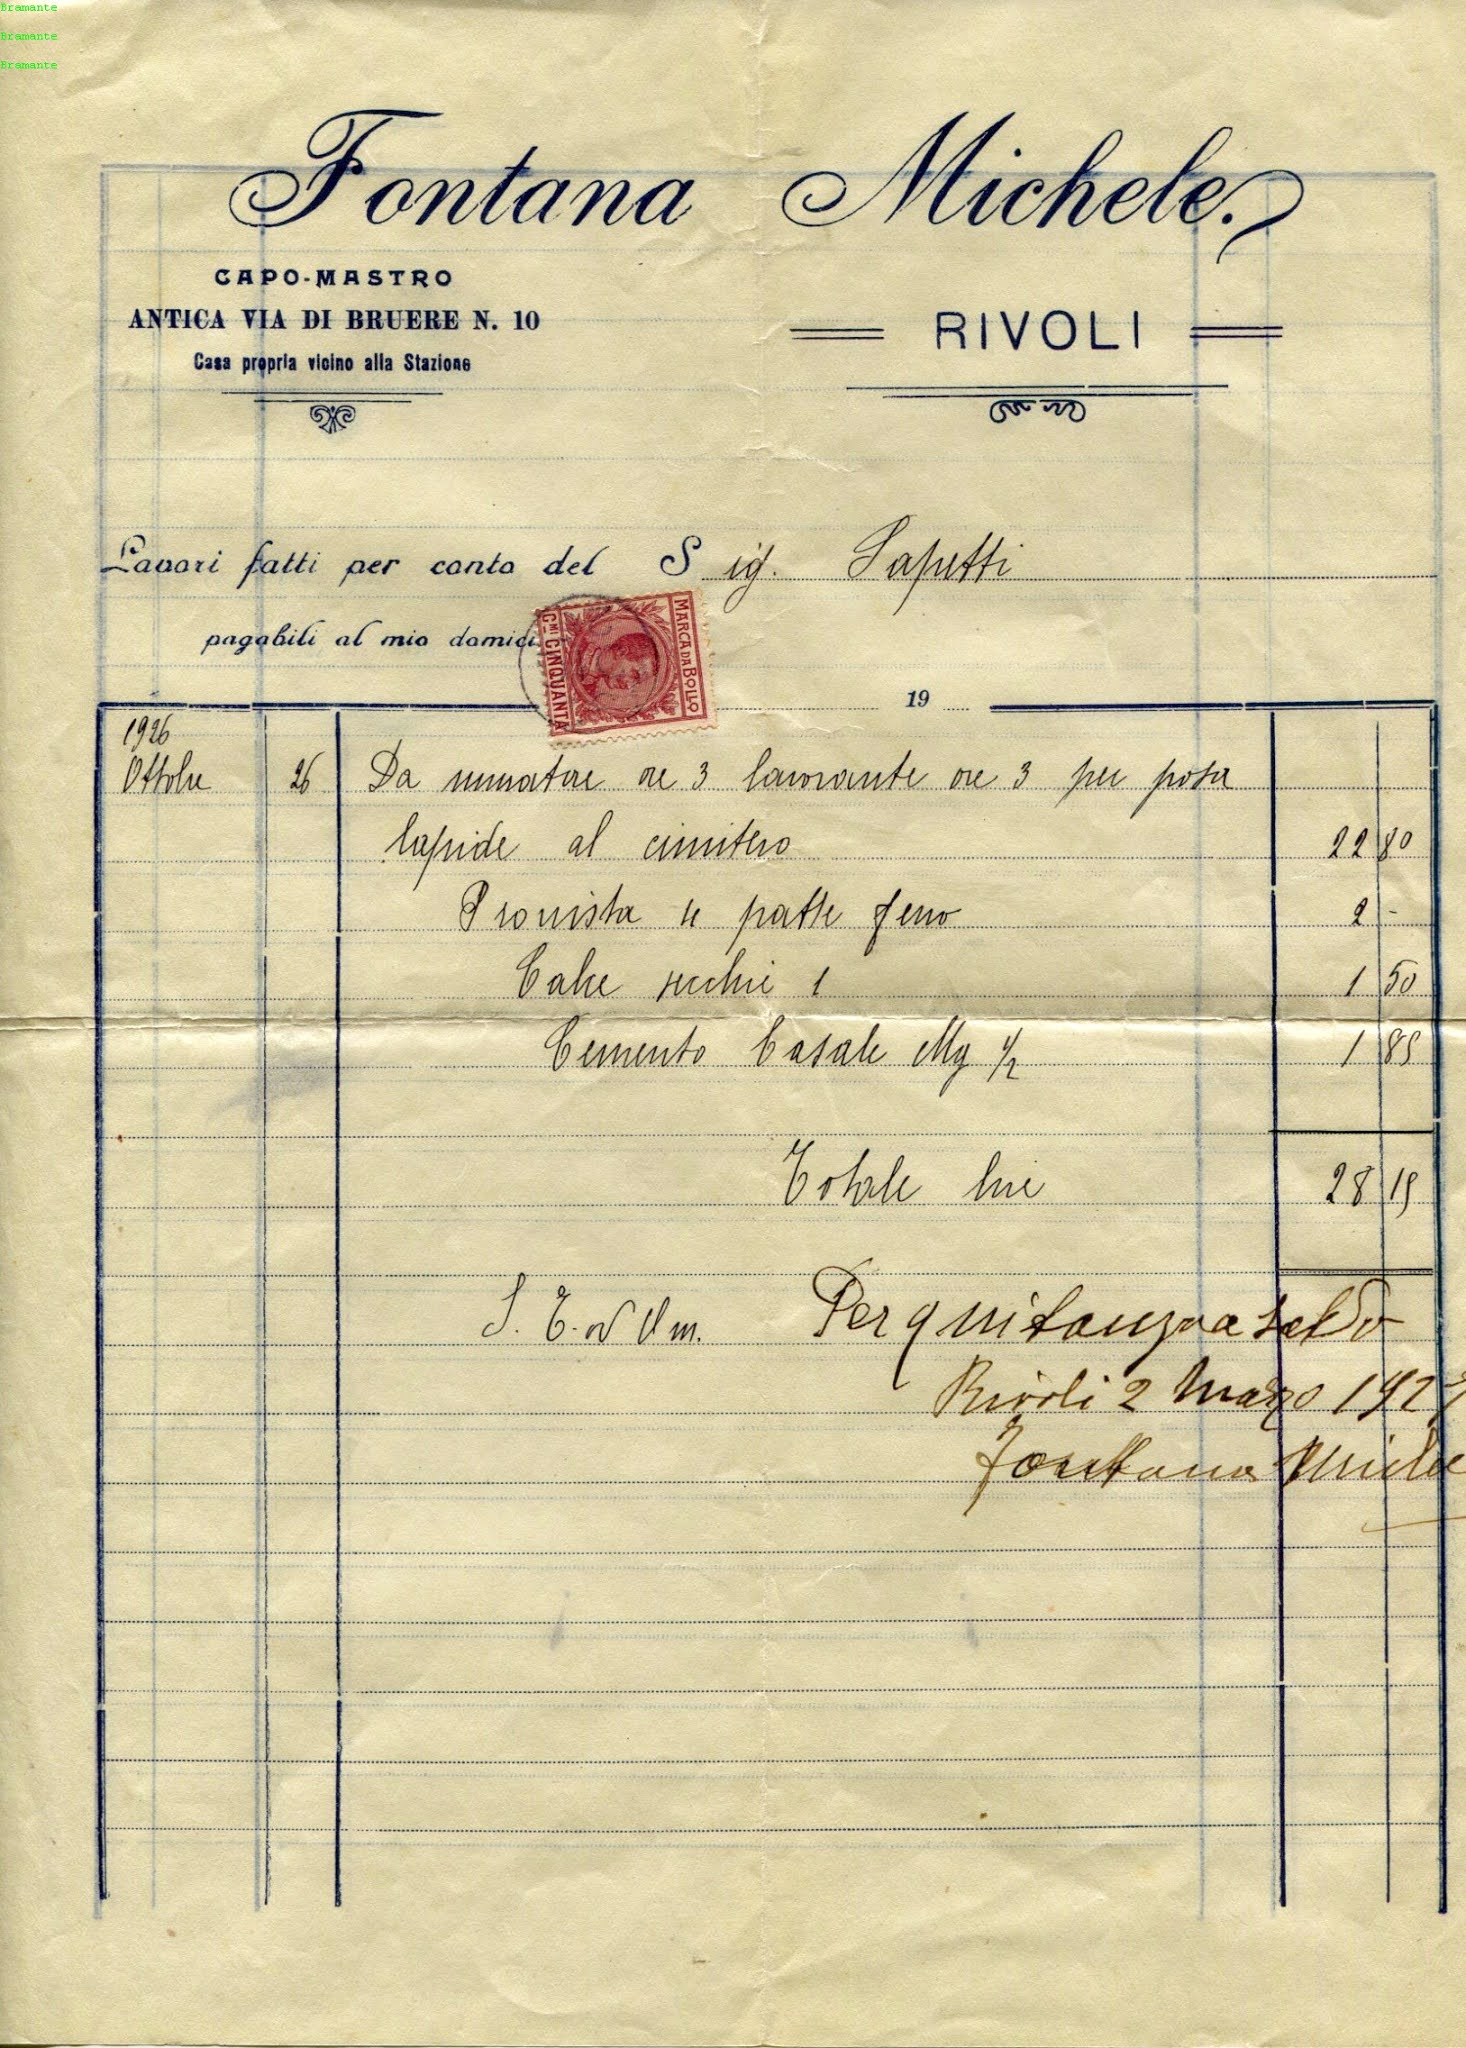 Bramante
Bramante
Bramante
Fontana Michele.
CAPO-MASTRO
ANTICA VIA DI BRUERE N. 10
Casa propria vicino alla Stazione
RIVOLI
Lavori fatti per conto del Sig. Sapetti
pagabili al mio domici
MARCA DA BOLLO
CMI CINQUANTA
19
1926
Ottobre 26 Da muratore ore 3 lavorante ore 3 per posa
lapide al cimitero 22 80
Provista 4 patte ferro 2 -
Calce secchie 1 1 50
Cemento Casale Mg 1/2 1 85
Totale lire 28 15
S. E. od Om.
Per quitanza a saldo
Rivoli 2 Marzo 1927
Fontana Michele